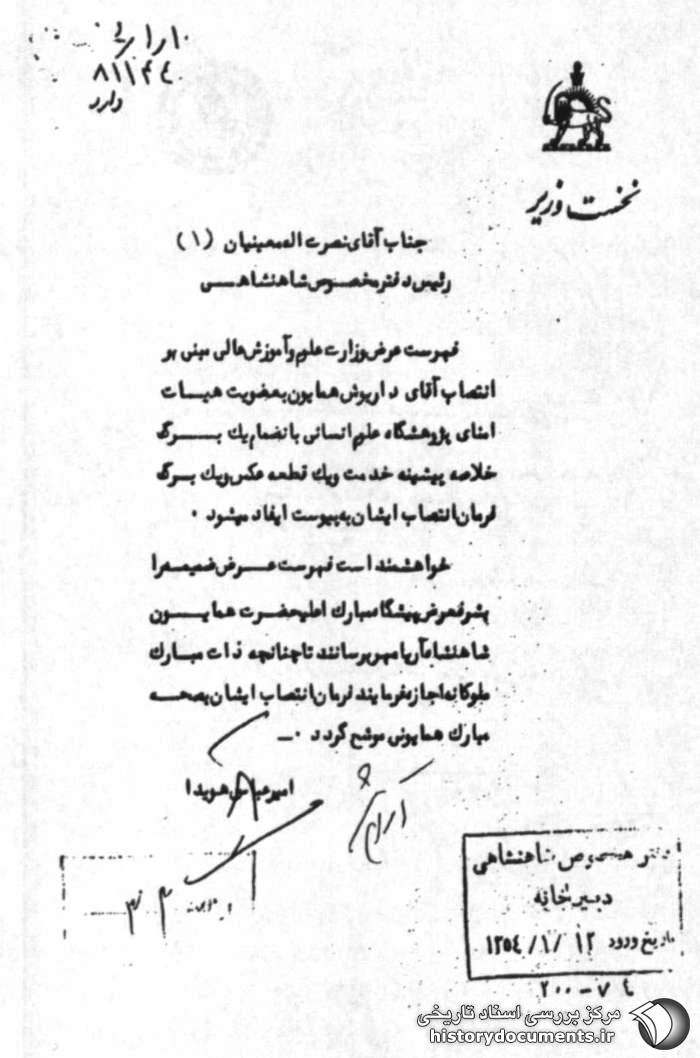 وارد
نخست وزیر
جناب آقای نصرت اله معینیان (۱)
رئیس دفتر مخصوص شاهنشاهی
فهرست عرض وزارت علوم و آموزش عالی مبنی بر
انتصاب آقای داریوش همایون بعضویت هیات
امنای پژوهشگاه علوم انسانی بانضمام یک برگ
خلاصه پیشینه خدمت ویک قطعه عکس ویک برگ
فرمان انتصاب ایشان به پیوست ایفاد میشود ۰
خواهشمند است فهرست عرض ضمیمه را
بشرفعرض پیشگاه مبارک اعلیحضرت همایون
شاهنشاه آریامهر برسانند تا چنانچه ذات مبارک
ملوکانه اجازه فرمایند فرمان انتصاب ایشان بصحه
مبارک همایونی موشح گردد ۰ـ
امیر عباس هویدا
دفتر مخصوص شاهنشاهی
دبیرخانه
تاریخ ورود ۱۲ /۱/ ۱۳۵۴
۲۰۰-۷٤
مرکز بررسی اسناد تاریخی
historydocuments.ir